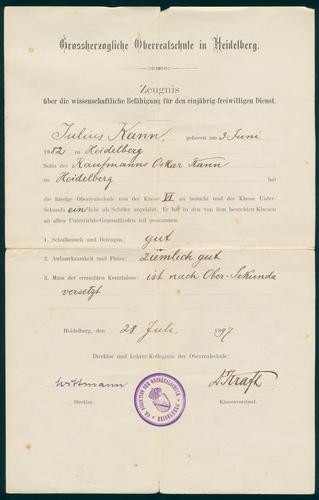 Grossherzogliche Oberrealschule in Heidelberg.
Zeugnis
über die wissenschaftliche Befähigung für den einjährig-freiwilligen Dienst.
Julius Kann, geboren am 3 Juni
1882 zu Heidelberg
Sohn des Kaufmanns Oskar Kann
zu Heidelberg hat
die hiesige Oberrealschule von der Klasse VI an besucht und der Klasse Unter-
Sekunda ein Jahr als Schüler angehört. Er hat in den von ihm besuchten Klassen
an allen Unterrichts-Gegenständen teil genommen.
1. Schulbesuch und Betragen: gut
2. Aufmerksamkeit und Fleiss: ziemlich gut
3. Mass der erreichten Kenntnisse: ist nach Ober-Sekunda
versetzt
Heidelberg, den 28 Juli 1897
Direktor und Lehrer-Kollegium der Oberrealschule:
Wittmann
Direktor.
Klassenvorstand.